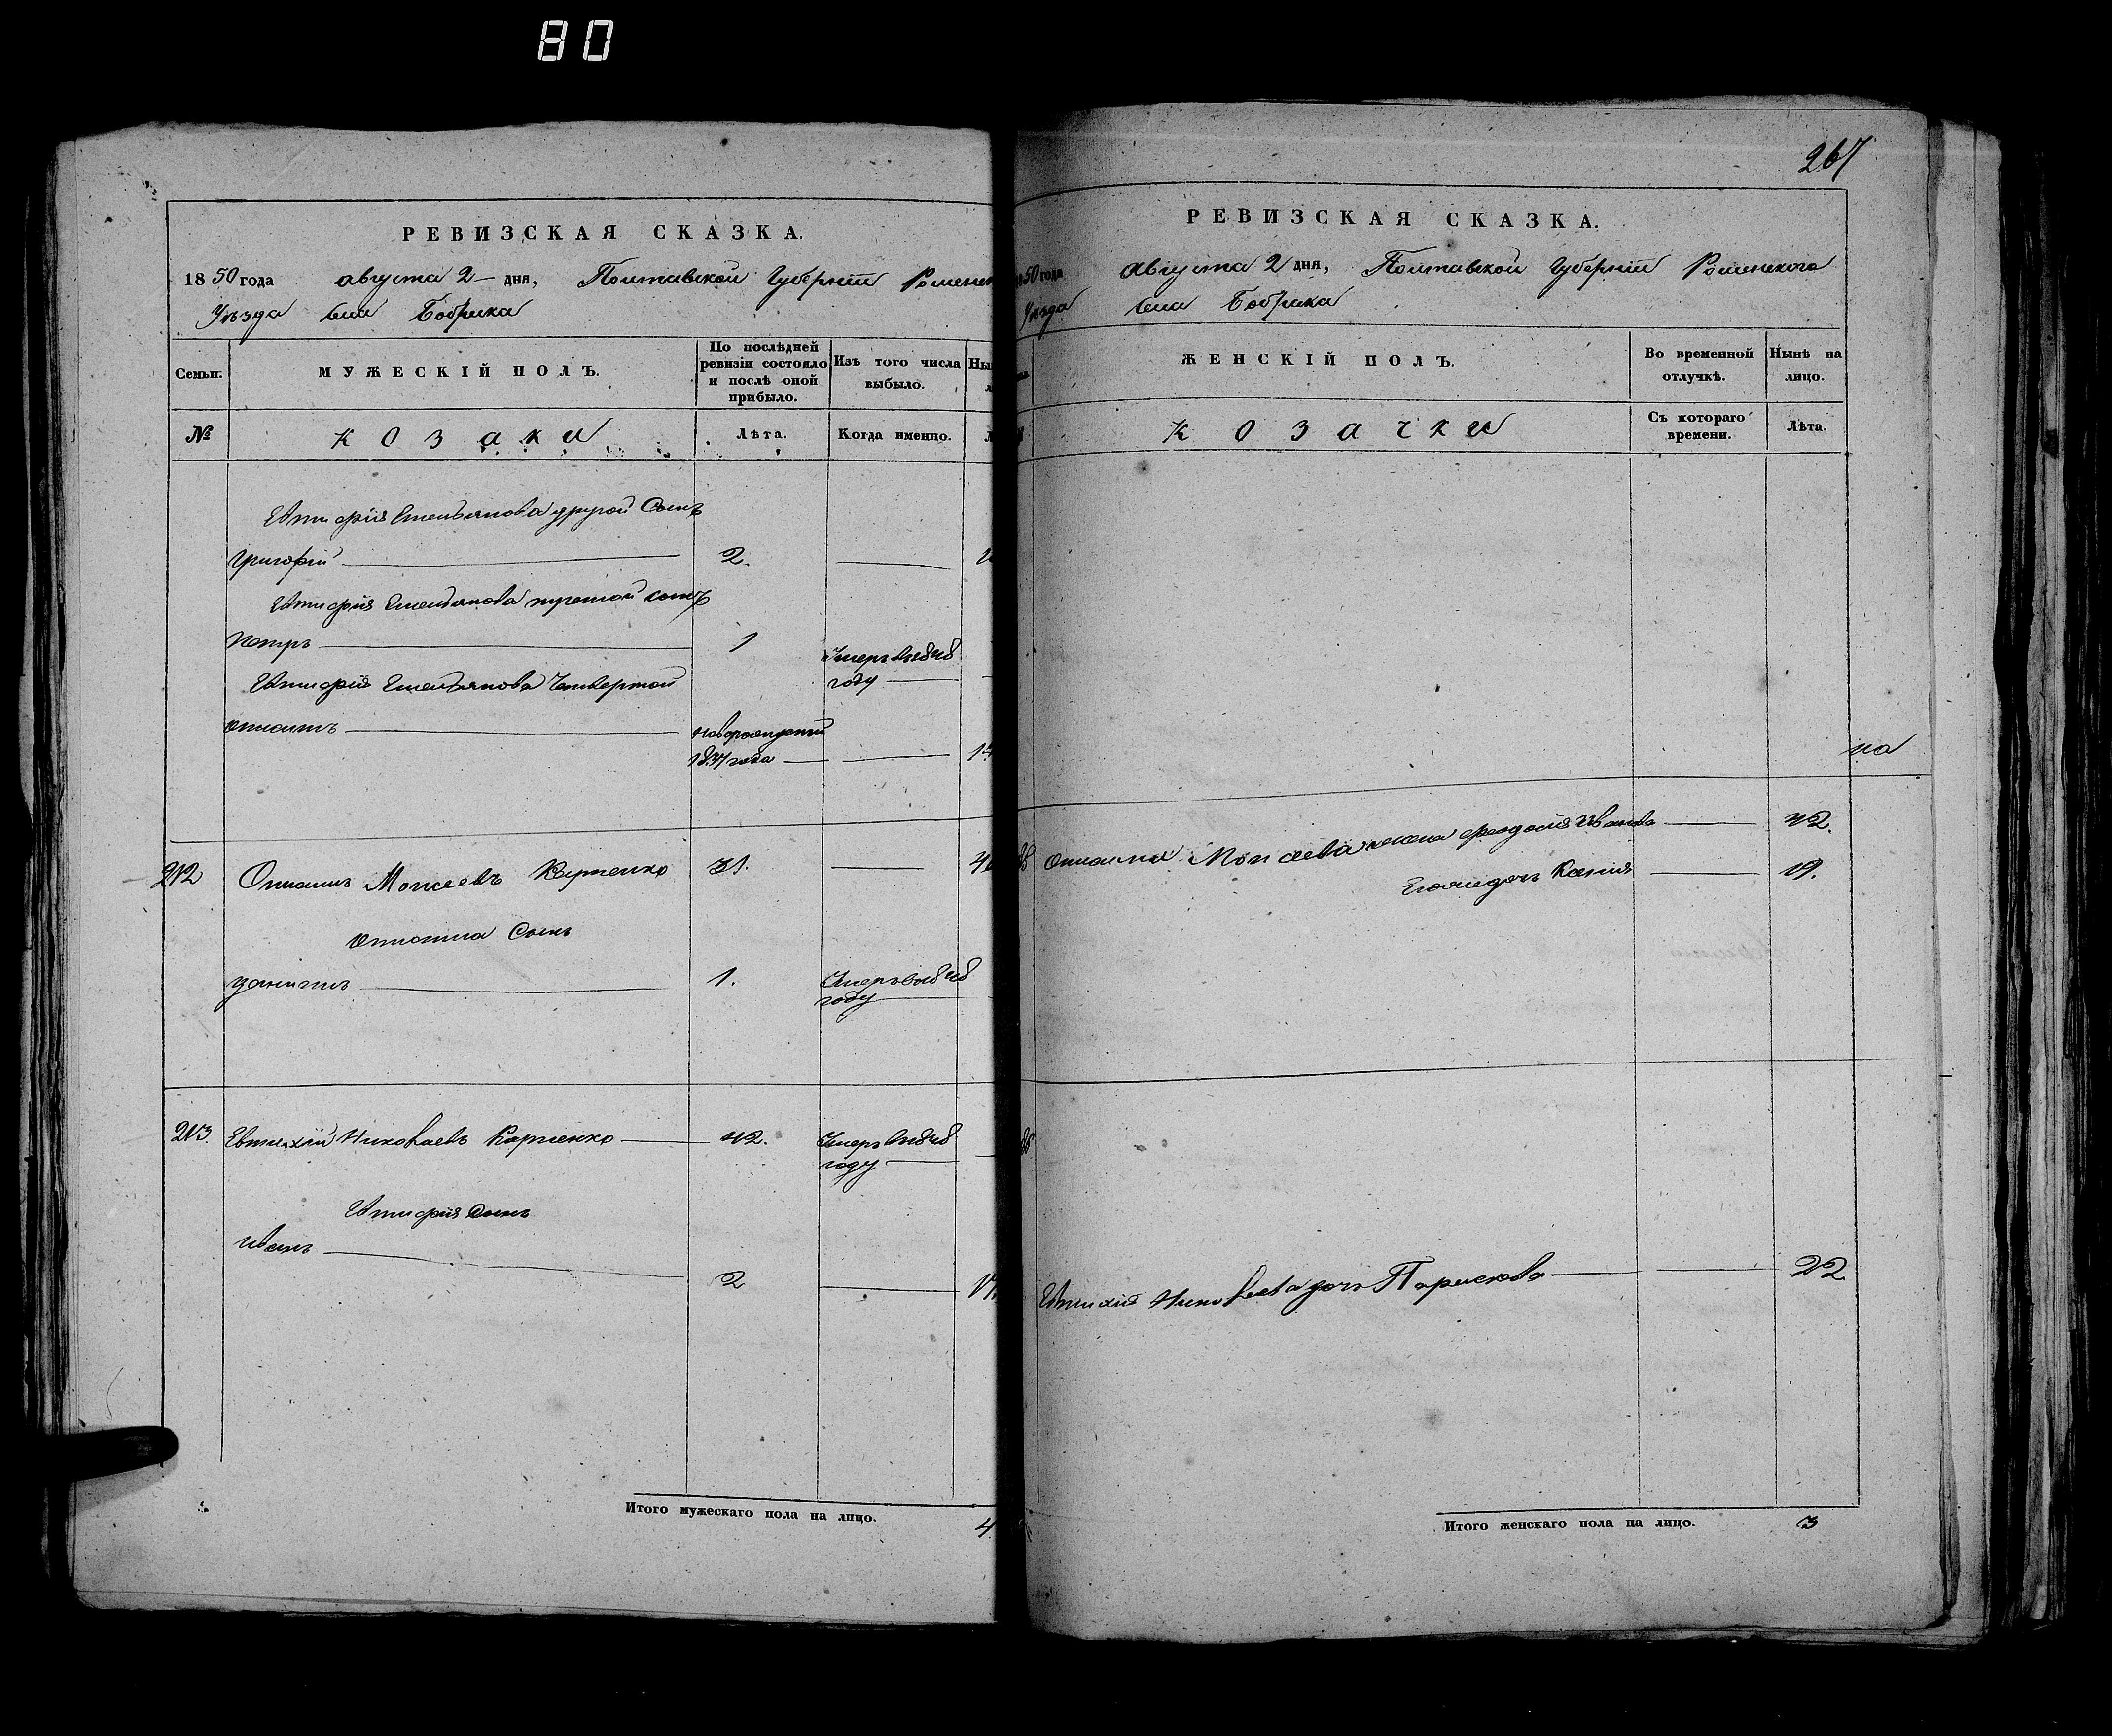 80
РЕВИЗСКАЯ СКАЗКА.
1850 года августа 2 дня, Полтавской Губерніи Роменск
Уѣзда села Бобрика
Семьи.
МУЖЕСКІЙ ПОЛЪ.
По послѣдней ревизіи состояло и послѣ оной прибыло.
Изъ того числа выбыло.
№
Козаки
Лѣта.
Когда именно.
Емельянова другой Сынъ
Григорій 2.
Емельянова третой сынъ
Петръ 1 Умеръ въ 1848
году
Емельянова Четвертой
Игнатъ Новорожденный
1837 года
212 Моисеевъ Карпенко 31.
Сынъ
Данило 1. Умеръ въ 1848
году
213. Евтихій Николаевъ Карпенко 42. Умеръ въ 1848
году
Сынъ
Иванъ 2 17.
Итого мужескаго пола на лицо. 4.
267
РЕВИЗСКАЯ СКАЗКА.
50 года августа 2 дня, Полтавской Губерніи Роменского
Уѣзда села Бобрика
ЖЕНСКІЙ ПОЛЪ.
Во временной отлучкѣ.
Нынѣ на лицо.
Козачки
Съ котораго времени.
Лѣта.
на
Моисеева жена Феодосія Иванова 42.
Его же дочь Ксенія 19.
Евтихія Николаева дочь Парасковія 22
Итого женскаго пола на лицо. 3